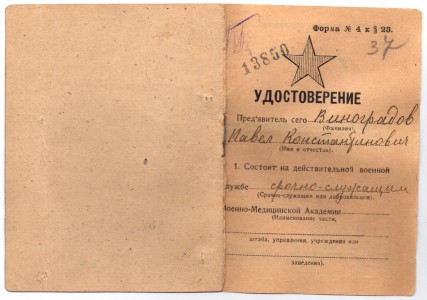 Форма № 4 к § 23.
37
13850
УДОСТОВЕРЕНИЕ
Пред'явитель сего Виноградов
(Фамилия)
Павел Константинович
(Имя и отчество).
1. Состоит на действительной военной
службе срочно-служащим
(Срочно-служащим или добровольцем).
Военно-Медицинской Академии
(Наименование части,
штаба, управления, учреждения или
заведения).